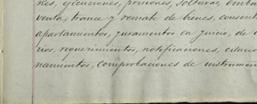 nes, ejecuciones, prisiones, solturas, emba
venta, trance y remate de bienes, consent
apartamentos, juramentos en juicio, de
rios, requerimientos, notificaciones, citacio
namientos, comprobaciones de instrumen